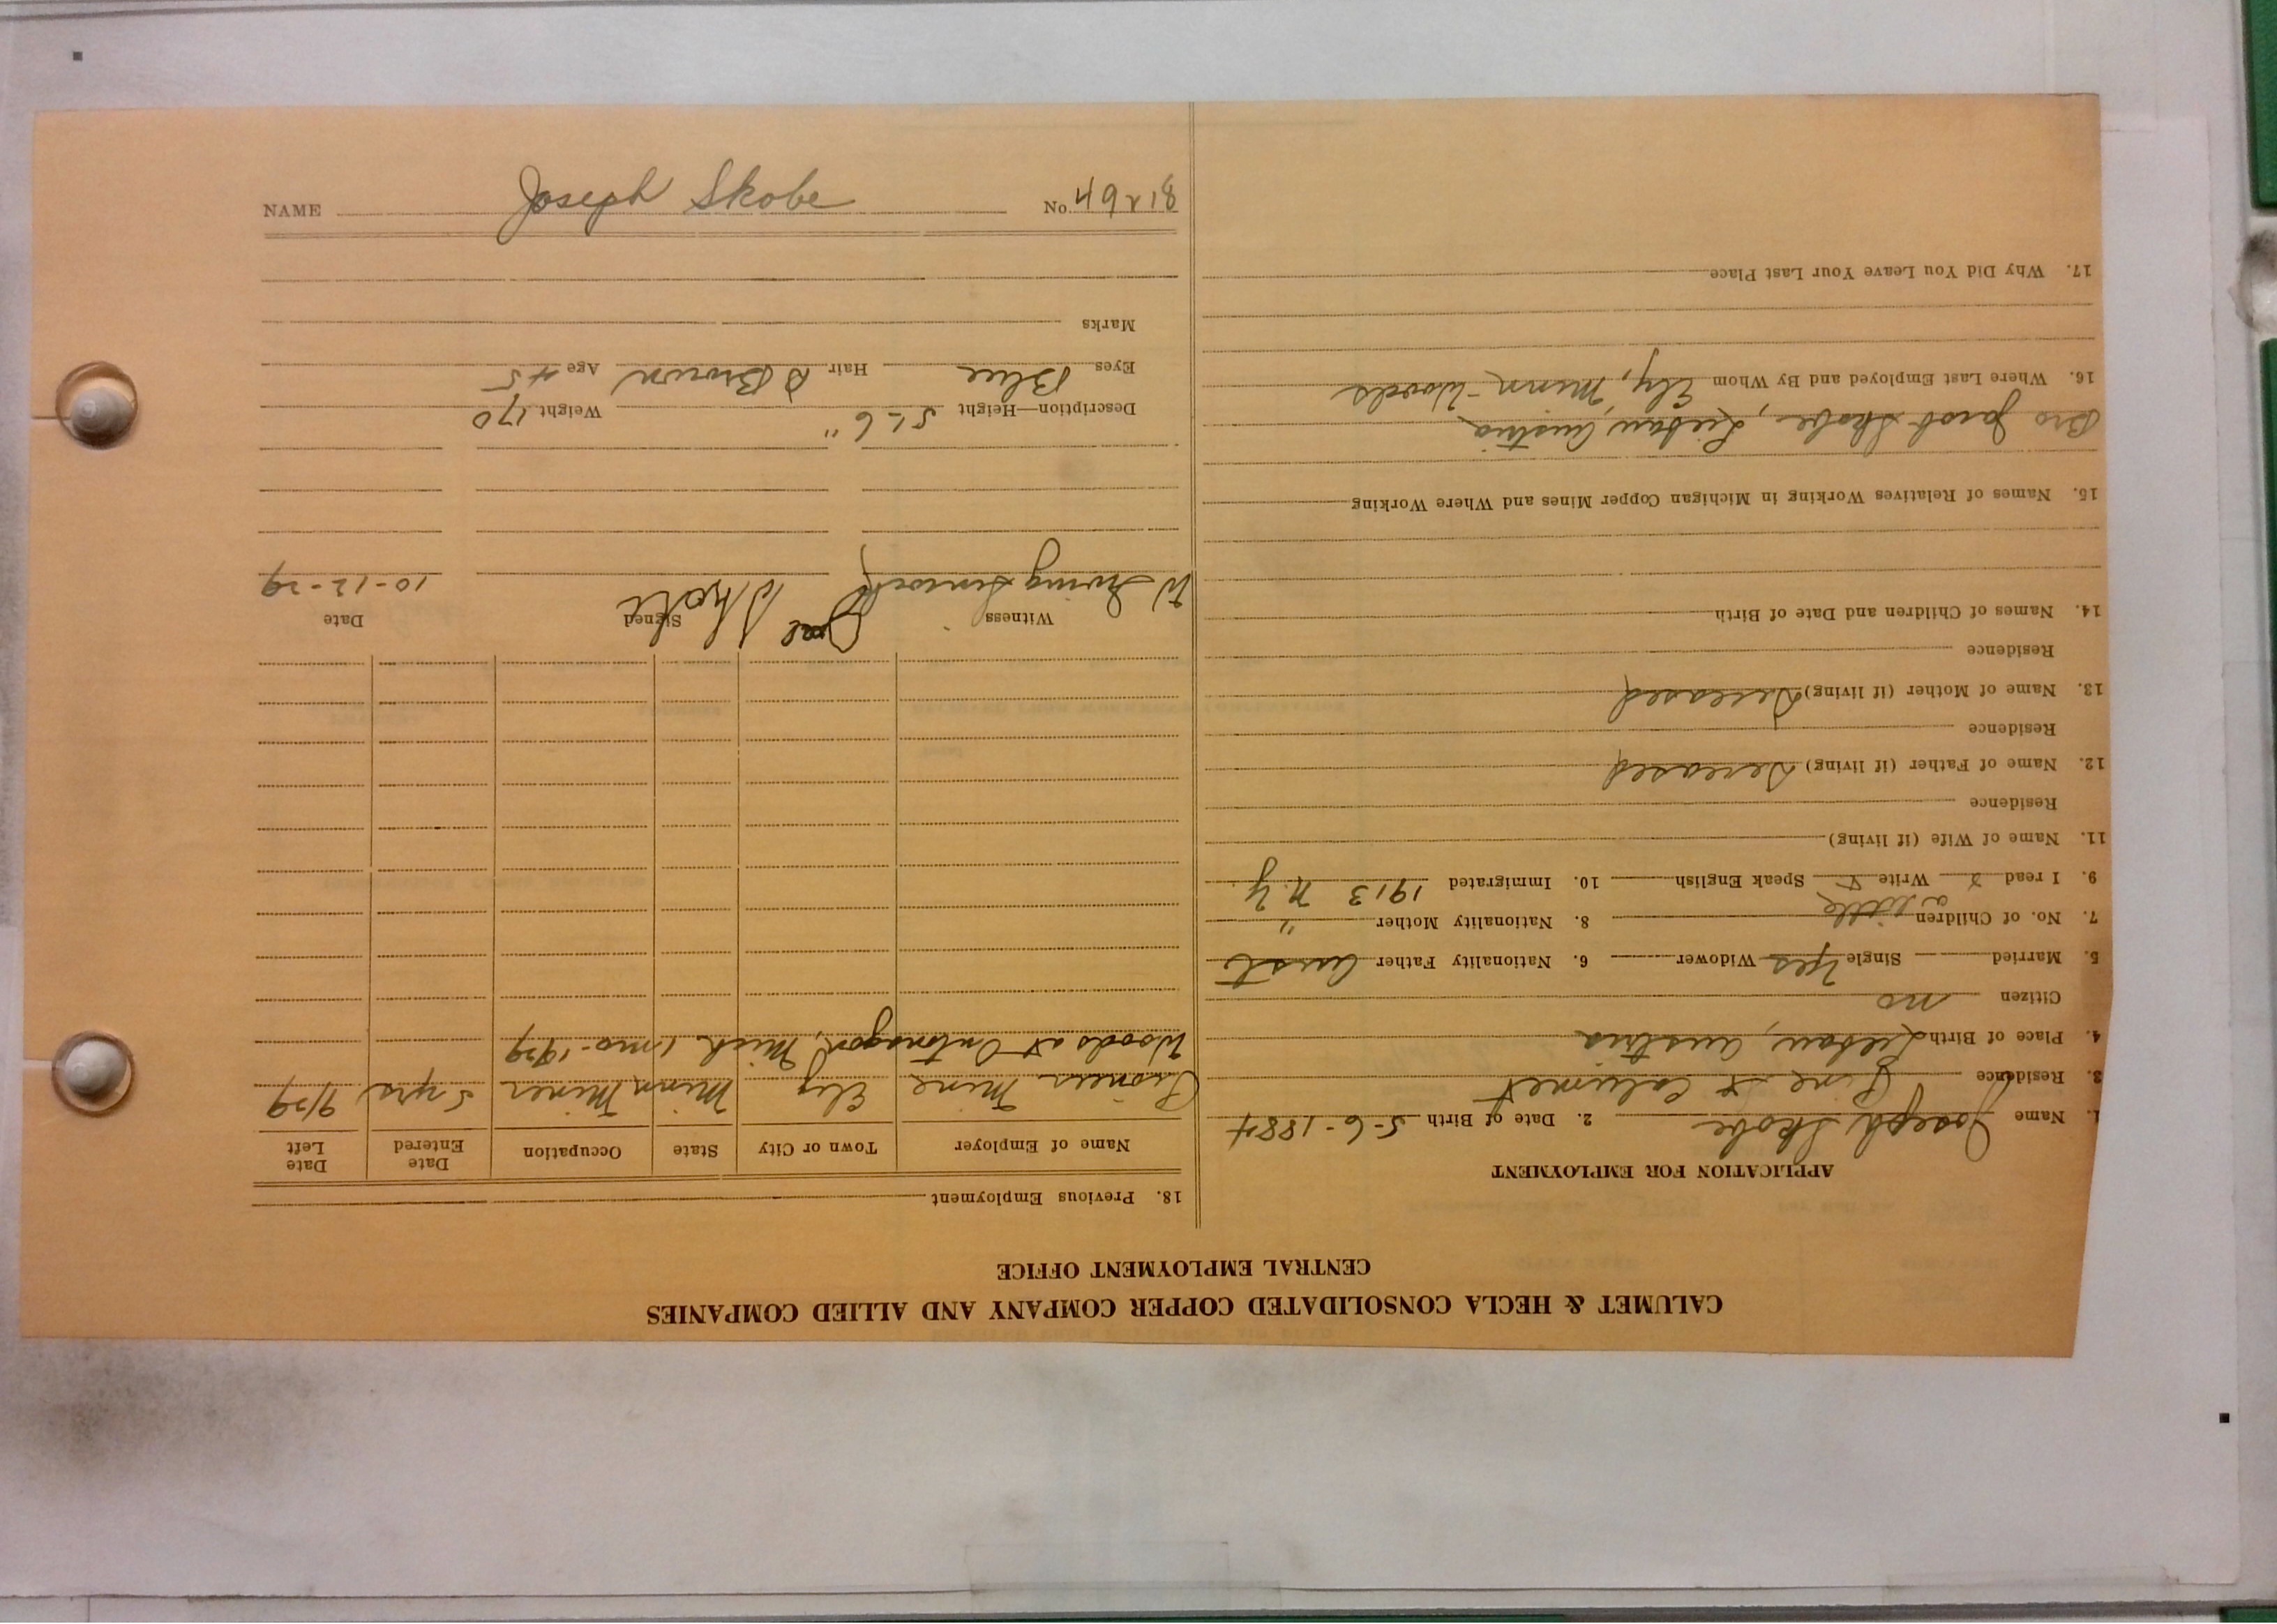 CALUMET & HECLA CONSOLIDATED COPPER COMPANY AND ALLIED COMPANIES
CENTRAL EMPLOYMENT OFFICE
APPLICATION FOR EMPLOYMENT
1. Name Joseph Skobe 2. Date of Birth 5-6-1884
3. Residence Pine St Calumet
4. Place of Birth Austria
Citizen no
5. Married Single Yes Widower 6. Nationality Father Aust
7. No. of Children 8. Nationality Mother "
a little
9. I read Write Speak English 10. Immigrated 1913 N.Y.
11. Name of Wife (if living)
Residence
12. Name of Father (if living) Deceased
Residence
13. Name of Mother (if living) Deceased
Residence
14. Names of Children and Date of Birth
15. Names of Relatives Working in Michigan Copper Mines and Where Working
Bro Jacob Skobe, Austria
16. Where Last Employed and By Whom Ely, Minn - Woods
17. Why Did You Leave Your Last Place
18. Previous Employment
Name of Employer Town or City State Occupation Date Entered Date Left
Pioneer Mine Ely Minn Miner 5 yrs 9/29
Woods at Ontonagon, Mich 1 mo - 1929
Witness Signed Date
W Irving Joe Skobe 10-12-29
Description—Height 5'-6" Weight 170
Eyes Blue Hair D Brown Age 45
Marks
NAME Joseph Skobe No